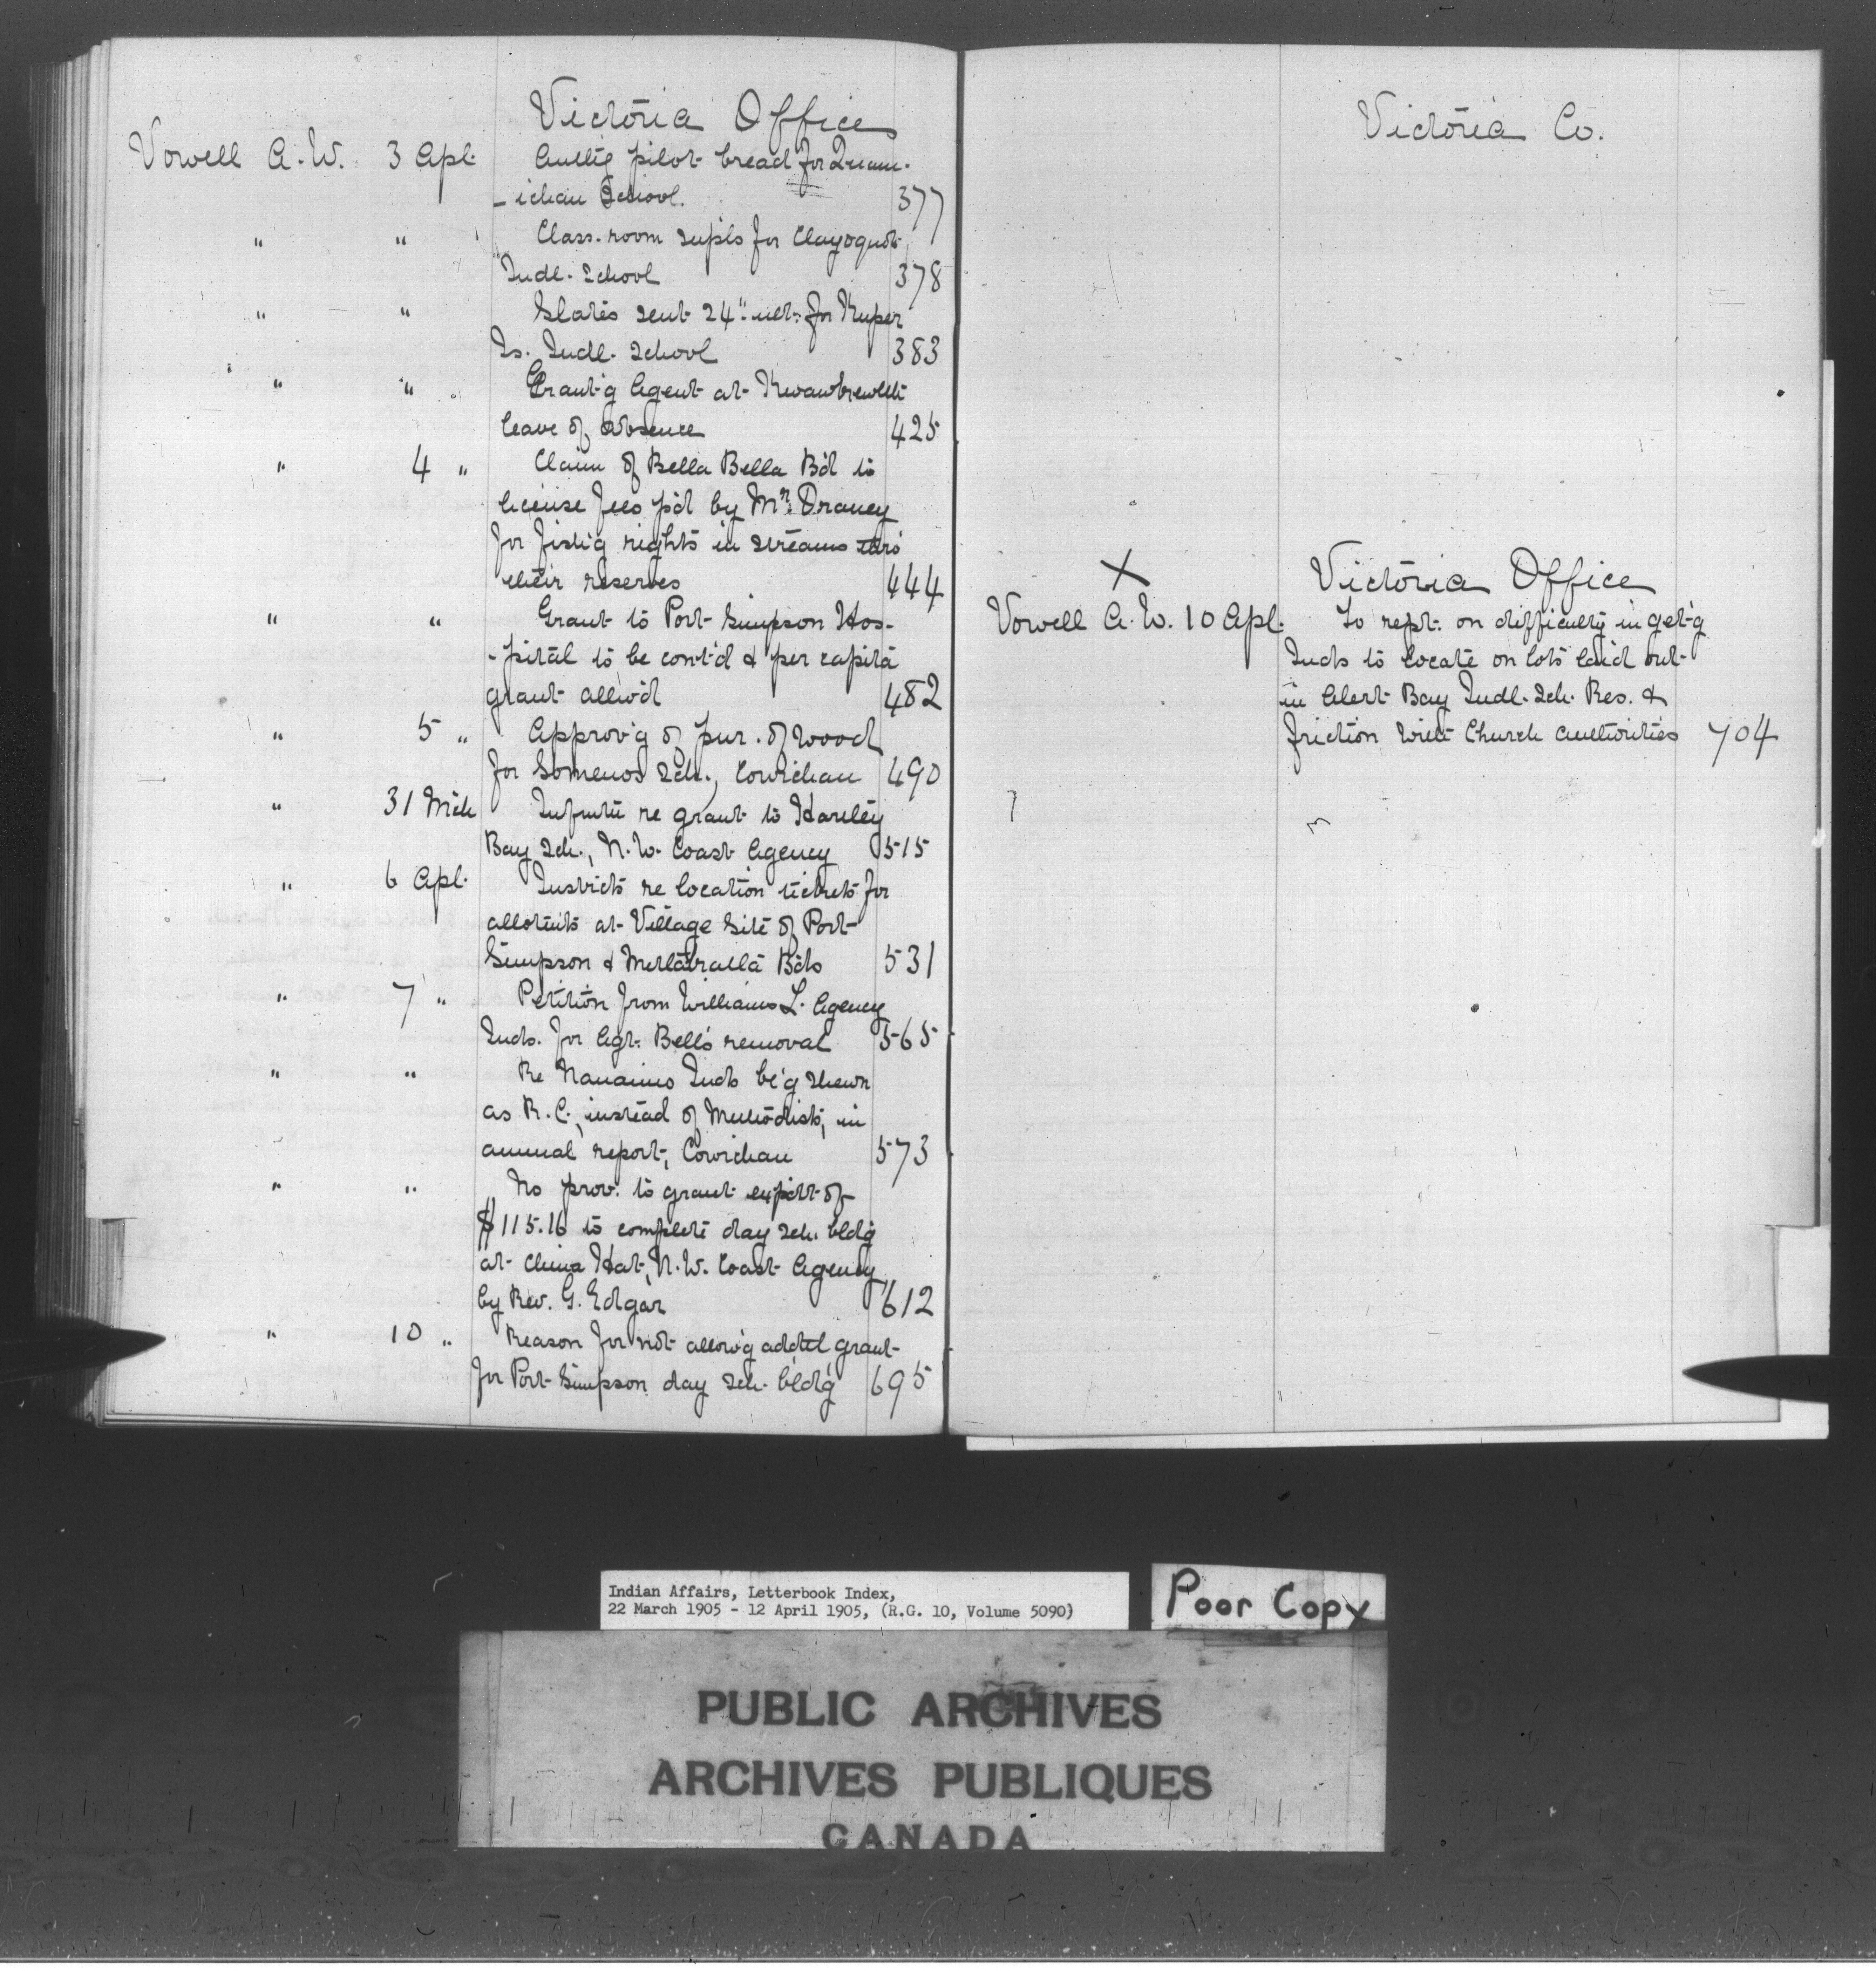 Victoria Office
Vowell A.W. 3 Apl. Auth'g pilot bread for Quam-
-ichan School. 377
" " Class-room supls for Clayoquot
Indl. School 378
" " Slates sent 24" ult. for Kuper
Is. Indl. School 383
" " Grant'g Agent at Kwawkewlth
leave of absence 425
" 4 " Claim of Bella Bella B'd to
license fees p'd by Mr. Draney
for fish'g rights in streams thro'
their reserves 444
" " Grant to Port Simpson Hos-
-pital to be cont'd & per capita
grant allw'd 482
" 5 " Approv'g of pur. of wood
for Somenos Sch., Cowichan 490
" 31 Mch Infmtn re grant to Hartley
Bay Sch., N.W. Coast Agency 515
" 6 Apl. Instrcts re location tickets for
allotmts at Village Site of Port
Simpson & Metlakatla B'ds 531
" 7 " Petition from Williams L. Agency
Inds. for Agt. Bell's removal 565
" " Re Nanaimo Inds be'g shewn
as R.C., instead of Methodists, in
annual report, Cowichan 573
" " No prov. to grant expdt of
$115.16 to complete day sch. bldg
at China Hat, N.W. Coast Agency
by Rev. G. Edgar 612
" 10 " Reason for not allow'g addtl grant
for Port Simpson day sch. bld'g 695
Victoria Co.
X
Victoria Office
Vowell A.W. 10 Apl. To rept. on difficulty in get'g
Inds to locate on lots laid out
in Alert Bay Indl. Sch. Res. &
friction with Church authorities 704
Indian Affairs, Letterbook Index,
22 March 1905 - 12 April 1905, (R.G. 10, Volume 5090)
Poor Copy
PUBLIC ARCHIVES
ARCHIVES PUBLIQUES
CANADA